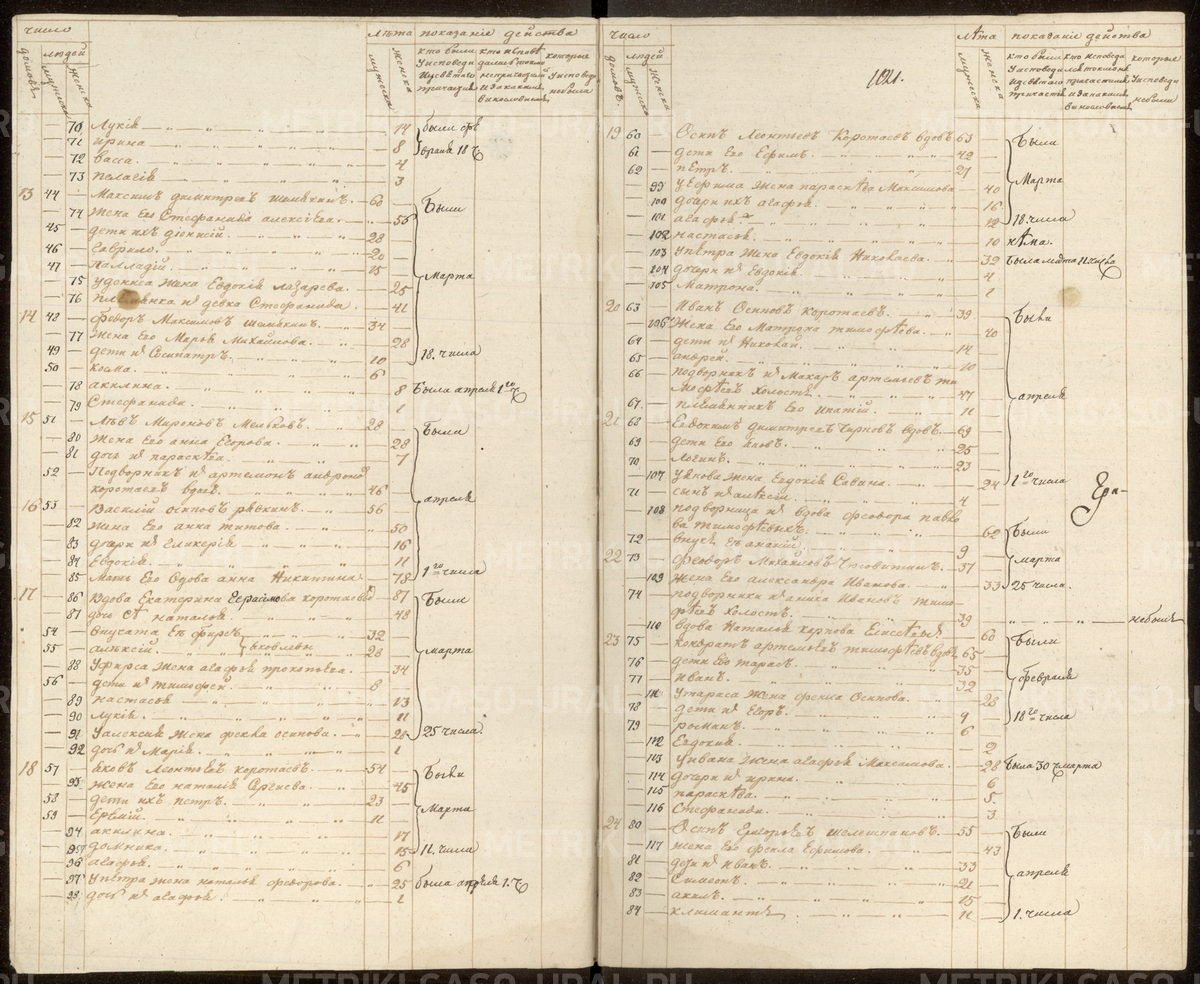 число
людей
домовъ
мужеска
женска
лѣта
мужеска
женска
показанiе действа
кто были
Уисповеди
исвѣтаго
причастiя
кто исповѣ
дались токмо
непричастил
которые
Уисповеди
небыли
70 Лукiя 14
71 ирина 8
72 васса 4
73 пелагiя 3
были фев
враля 18 ч
13 44 Максимъ димитреевъ шамякинъ 60
74 Жена Его Стефанида алексiева 56
45 дети ихъ дiонисiй 28
46 Гаврило 20
47 палладiй 15
75 Удениса жена Евдокiя лазарева 25
76 племянка и девка Стефанида 41
14 42 Федоръ Максимовъ шамякинъ 34
77 Жена Его Марья Михайлова 28
49 дети ихъ Сосипатръ 10
50 козма 6
Были
Марта
18. числа
78 акилина 8 Была апреля 1го ч
79 Стефанида 1
15 51 Левъ Мироновъ Мельковъ 28
80 Жена Его анна Егорова 28
81 дочь ихъ параскева 7
52 Подворникъ ихъ артемонъ андроно
коротаевъ вдовъ 46
16 53 Василiй осиповъ рявкинъ 56
82 Жена Его анна титова 50
83 дочери ихъ гликерiя 16
84 Евдокiя 11
85 Мать Его вдова анна Никитина 78
Были
апреля
1го числа
17 86 Вдова Екатерина Герасимова коротаева 87
87 дочь Еѣ наталья 48
54 внучата Еѣ фирсъ 32
55 алексiй яковлевы 28
88 Уфирса жена агафья прокопьева 34
56 дети ихъ тимофей 8
89 настасья 13
90 Лукiя 11
91 Уалексiя жена фекла осипова 28
92 дочь ихъ Марiя 1
Были
марта
25 числа
18 57 яковъ Леонтьевъ коротаевъ 54
93 Жена Его наталiя Сергиева 45
58 дети ихъ петръ 23
59 Еремiй 11
94 акилина 17
95 домника 15
96 агафья 6
Были
Марта
11. числа
97 Упетра жена наталья федорова 25 была апреля 1. ч
98 дочь ихъ агафья 1
1021.
число
людей
домовъ
мужеска
женска
лѣта
мужеска
женска
показанiе действа
кто были
Уисповеди
исвѣтаго
причастiя
кто исповеда
лся токмоне
причастился
которые
Уисповеди
небыли
19 60 Осипъ Леонтьевъ коротаевъ вдовъ 63
61 дети Его Ефимъ 42
62 пётръ 27
99 Уефима жена параскева Максимова 40
100 дочери ихъ агафья 16
101 агафья 12
Были
Марта
18. числа
102 настасья 10 нѣма.
103 Упетра жена Евдокiя Никонаева 32 Была марта 11. числа
104 дочери ихъ Евдокiя 4
105 Матрона 1
20 63 Иванъ Осиповъ коротаевъ 39
106 Жена Его Матрона тимофеева 40
64 дети ихъ Николай 14
65 андрей 10
66 подворникъ ихъ Макаръ артемьевъ ти
мофеевъ холостъ 47
67 племянникъ Его ипатiй 11
21 68 Евдокимъ димитреевъ Карповъ вдовъ 69
69 дети Его яковъ 25
70 логинъ 23
107 Уякова жена Евдокiя Савина 24
Были
апреля
1го числа
71 сынъ ихъ алексiй 4
108 подворница ихъ вдова феодора павло
ва тимофеевыхъ 62
72 внукъ еѣ ананiй 9
22 73 феодоръ Михайловъ Часовитинъ 37
109 Жена Его александра Иванова 33
Были
марта
25 числа.
74 подворники ихъ аника Ивановъ тимо-
феевъ холостъ 39 небылъ
110 вдова Наталья карпова Елисеевыя 60
23 75 кондратъ артемьевъ тимофеевъ вдовъ 65
76 дети Его тарасъ 35
77 иванъ 32
111 Утараса жена фекла Осипова 28
78 дети ихъ Егоръ 9
79 романъ 6
112 Евдокия 2
Были
Февраля
18го числа
113 Уивана жена агафья Максимова 28 Была 30 ч марта
114 дочери ихъ ирина 6
115 параскева 5
116 Стефанида 3
24 80 Осипъ Григорьевъ шелешпановъ 55
117 жена Его фекла Ефимова 43
81 дети ихъ Иванъ 33
82 Симеонъ 21
83 акимъ 15
84 климантъ 11
Были
апреля
1. числа